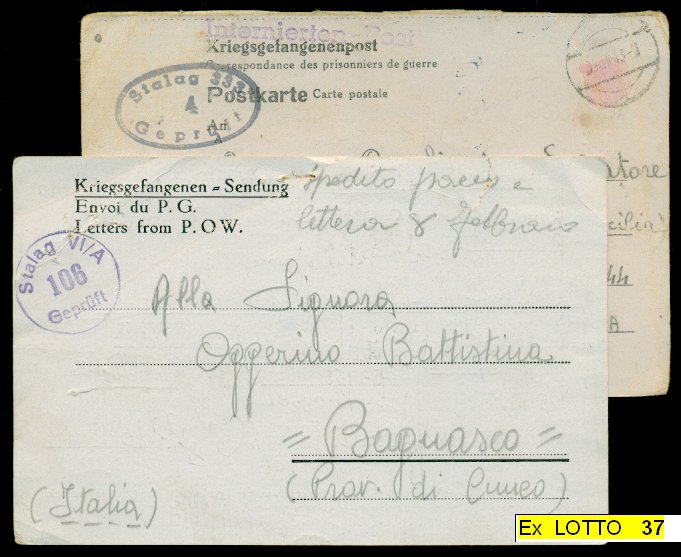 Internierten-Post
Kriegsgefangenenpost
Correspondance des prisonniers de guerre
Postkarte Carte postale
Stalag 333
4
Geprüft
An
A
Kriegsgefangenen = Sendung
Envoi du P. G.
Letters from P. O. W.
spedito pacco e
lettera 8 Febbraio
Stalag VI/A
106
Geprüft
Alla Signora
Oggerino Battistina
= Bagnasco =
(Prov. di Cuneo)
(Italia)
44
A
Ex LOTTO 37